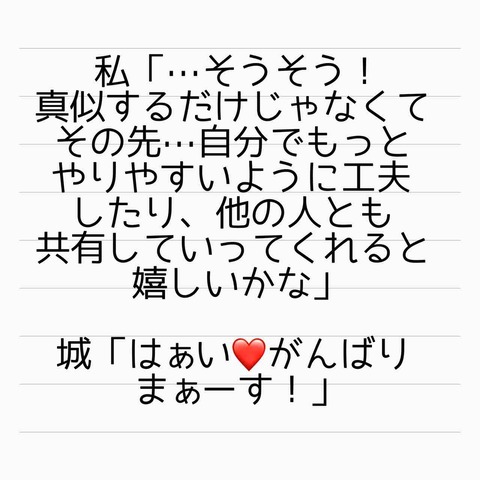 私「…そうそう！
真似するだけじゃなくて
その先…自分でもっと
やりやすいように工夫
したり、他の人とも
共有していってくれると
嬉しいかな」
城「はぁい❤️がんばり
まぁーす！」